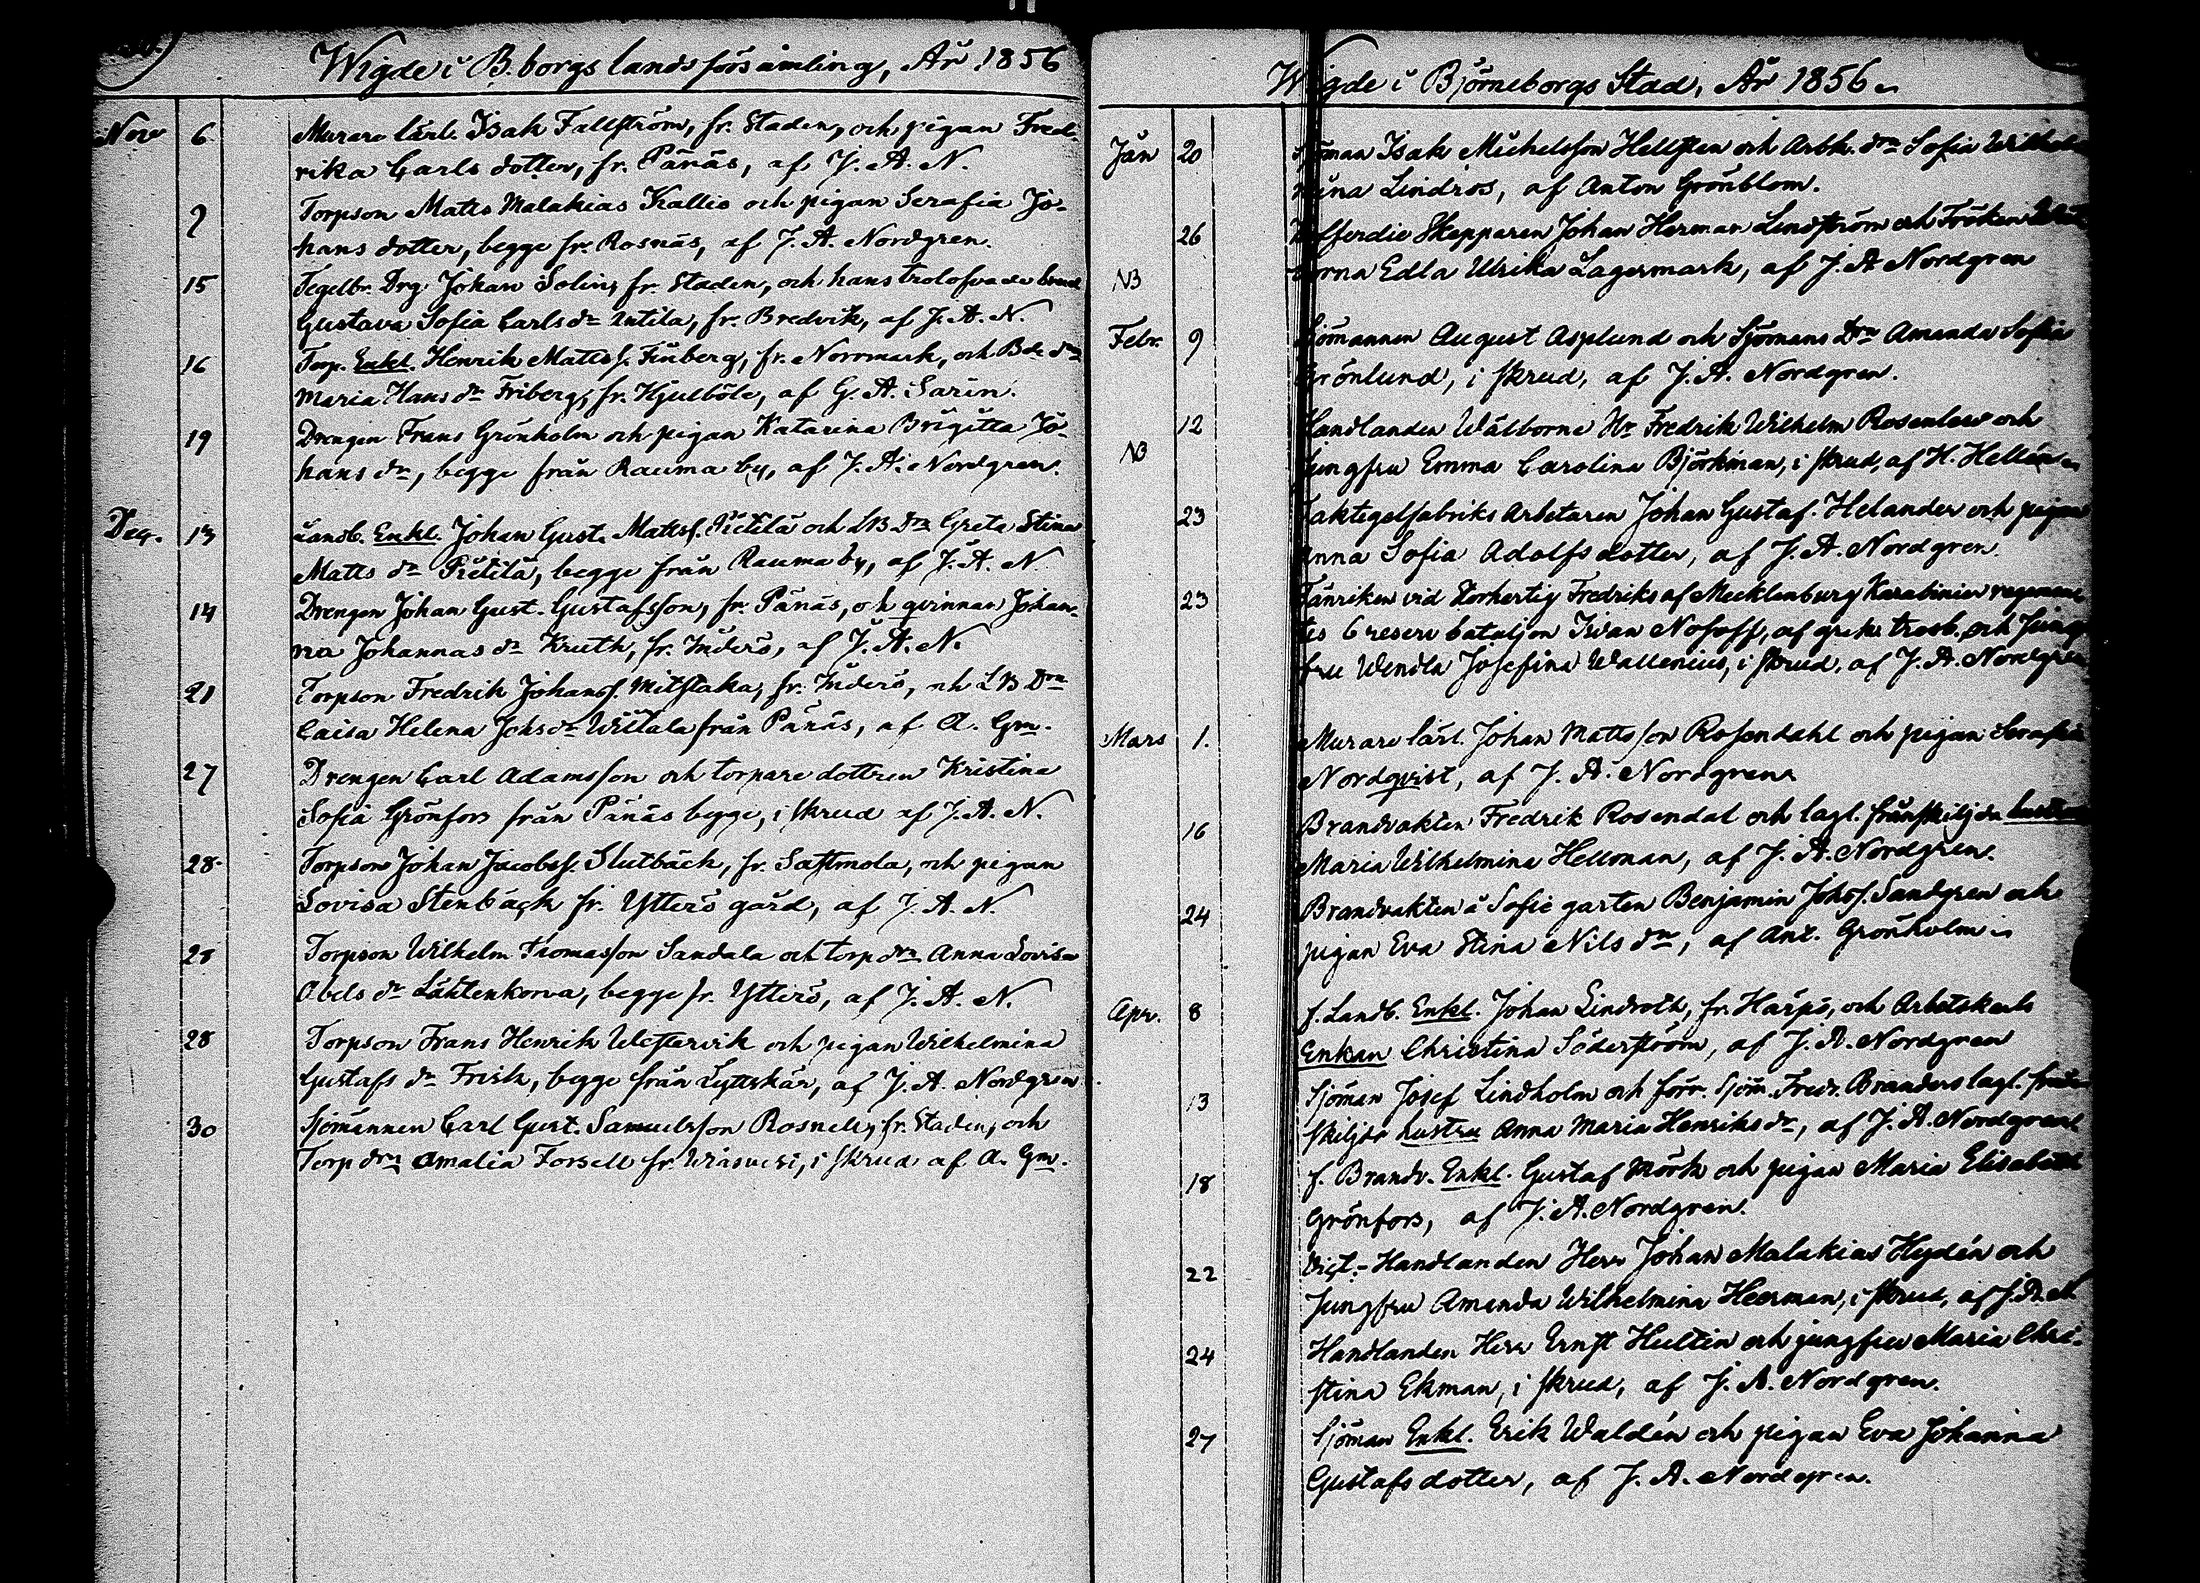 Wigde i B.borgs landsförsamling, År 1856
Nov 6 Murare lärl. Isak Fallström, fr. Staden, och pigan Fred-
rika Carls dotter, fr. Pånäs, af J. A. N.
9 Torpson Matts Malakias Kallio och pigan Serafia Jo-
hans dotter, begge fr. Rosnäs, af J. A. Nordgren.
15 Tegelbr. Drg. Johan Solin, fr. Staden, och hans trolofvade brud
Gustava Sofia Carls dr Antila, fr. Bredvik, af J. A. N.
16 Torp. Enkl. Henrik Mattss. Finberg, fr. Norrmark, och Bde dr
Maria Hans dr Friberg, fr. Hjulböle, af G. A. Sarin.
19 Drengen Frans Grönholm och pigan Katarina Brigitta Jo-
hans dr, begge från Rauma by, af J. A. Nordgren.
Dec. 13 Landb. Enkl. Johan Gust. Mattss. Pietilä och LB dr Greta Stina
Matts dr Pietilä, begge från Rauma by, af J. A. N.
14 Drengen Johan Gust. Gustafsson, fr. Pånäs, och qvinnan Johan-
na Johannas dr Kruth, fr. Inderö, af J. A. N.
21 Torpson Fredrik Johanss. Mitstaka, fr. Inderö, och LB Drn
Caisa Helena Johs dr Wiitala från Pånäs, af A. Gm.
27 Drengen Carl Adamsson och torpare dottren Kristina
Sofia Grönfors från Pånäs begge, i skrud af J. A. N.
28 Torpson Johan Jacobss. Slutbäck, fr. Sastmola, och pigan
Lovisa Stenbäck fr. Ytterö gård, af J. A. N.
28 Torpson Wilhelm Thomasson Sandala och torp drn Anna Lovisa
Abels dr Lähtenkorva, begge fr. Ytterö, af J. A. N.
28 Torpson Frans Henrik Westervik och pigan Wilhelmina
Gustafs dr Frisk, begge från Lyttskär, af J. A. Nordgren
30 Sjömannen Carl Gust. Samuelsson Rosnell, fr. Staden, och
Torp drn Amalia Forsell fr. i skrud af A. Gm.
Wigde i Björneborgs Stad, År 1856.
Jan 20 Sjöman Isak Michelsson Hellsten och Arbk. drn Sofia Wilhel-
mina Lindros, af Anton Grönblom.
26 Kofferdie Skepparen Johan Herman Lindström och Fröken
NB borna Edla Ulrika Lagermark, af J. A. Nordgren
Febr. 9 Sjömannen August Asplund och Sjömans Drn Amanda Sofia
Grönlund, i skrud, af J. A. Nordgren.
12 Handlanden Wälborne Hr Fredrik Wilhelm Rosenlew och
NB Jungfru Emma Carolina Björkman, i skrud, af H. Hellén
23 Taktegelfabriks Arbetaren Johan Gustaf Helander och pigan
Anna Sofia Adolfs dotter, af J. A. Nordgren
23 Fänriken vid Storhertig Fredriks af Mecklenburg Karabinier regemen-
tes 6 reserv bataljon Iwan Nosoff, af grek. trosb. och Jung-
fru Wendla Josefina Wallenius, i skrud, af J. A. Nordgren
Mars 1. Murare lärl. Johan Mattsson Rosendahl och pigan Serafia
Nordqvist, af J. A. Nordgren
16 Brandvakten Fredrik Rosendal och lagl. frånskiljda hustrun
Maria Wilhelmina Hellman, af J. A. Nordgren.
24 Brandvakten å Sofie garten Benjamin Johss. Sandgren och
pigan Eva Stina Nils drn, af Ant. Grönholm
Apr. 8 f. Landb. Enkl. Johan Lindroth, fr. Harpö, och Arbetskarls
Enkan Christina Söderström, af J. A. Nordgren
13 Sjöman Josef Lindholm och förr. Sjöm. Fredr. Branders lagl. från-
skiljda hustru Anna Maria Henriks dr, af J. A. Nordgren
18 f. Brandv. Enkl. Gustaf Mörk och pigan Maria Elisabeth
Grönfors, af J. A. Nordgren.
22 Vict.-Handlanden Herr Johan Malakias Hydén och
Jungfru Amanda Wilhelmina Heerman, i skrud, af J. A. N
24 Handlanden Herr Ernst Hultin och jungfru Maria Chri-
stina Ekman, i skrud, af J. A. Nordgren.
27 Sjöman Enkl. Erik Waldén och pigan Eva Johanna
Gustafs dotter, af J. A. Nordgren.